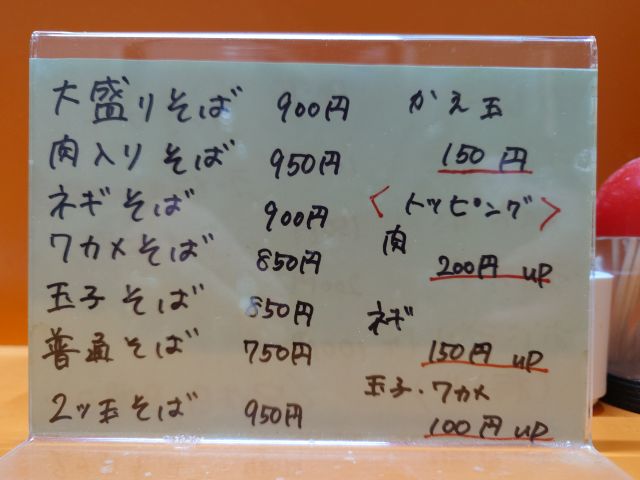 大盛りそば 900円
肉入りそば 950円
ネギそば 900円
ワカメそば 850円
玉子そば 850円
普通そば 750円
2ッ玉そば 950円
かえ玉
150円
<トッピング>
肉
200円 up
ネギ
150円 up
玉子・ワカメ
100円 up